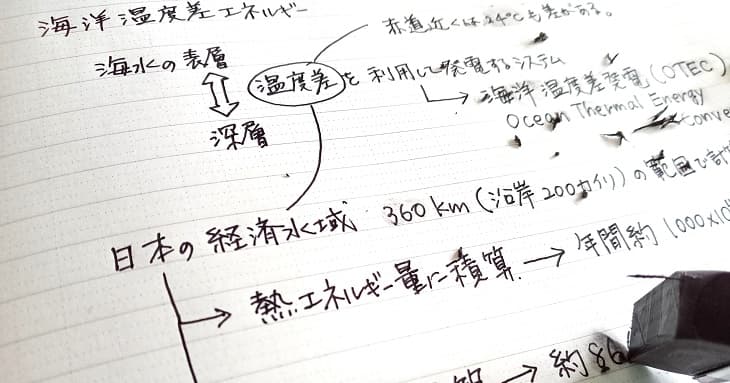 海洋温度差エネルギー
赤道近くは24℃も差がある。
海水の表層
温度差を利用して発電するシステム
深層
海洋温度差発電(OTEC)
Ocean Thermal Energy
日本の経済水域 360km(沿岸200カイリ)の範囲で
熱エネルギー量に積算 → 年間約1000×10
→ 約86